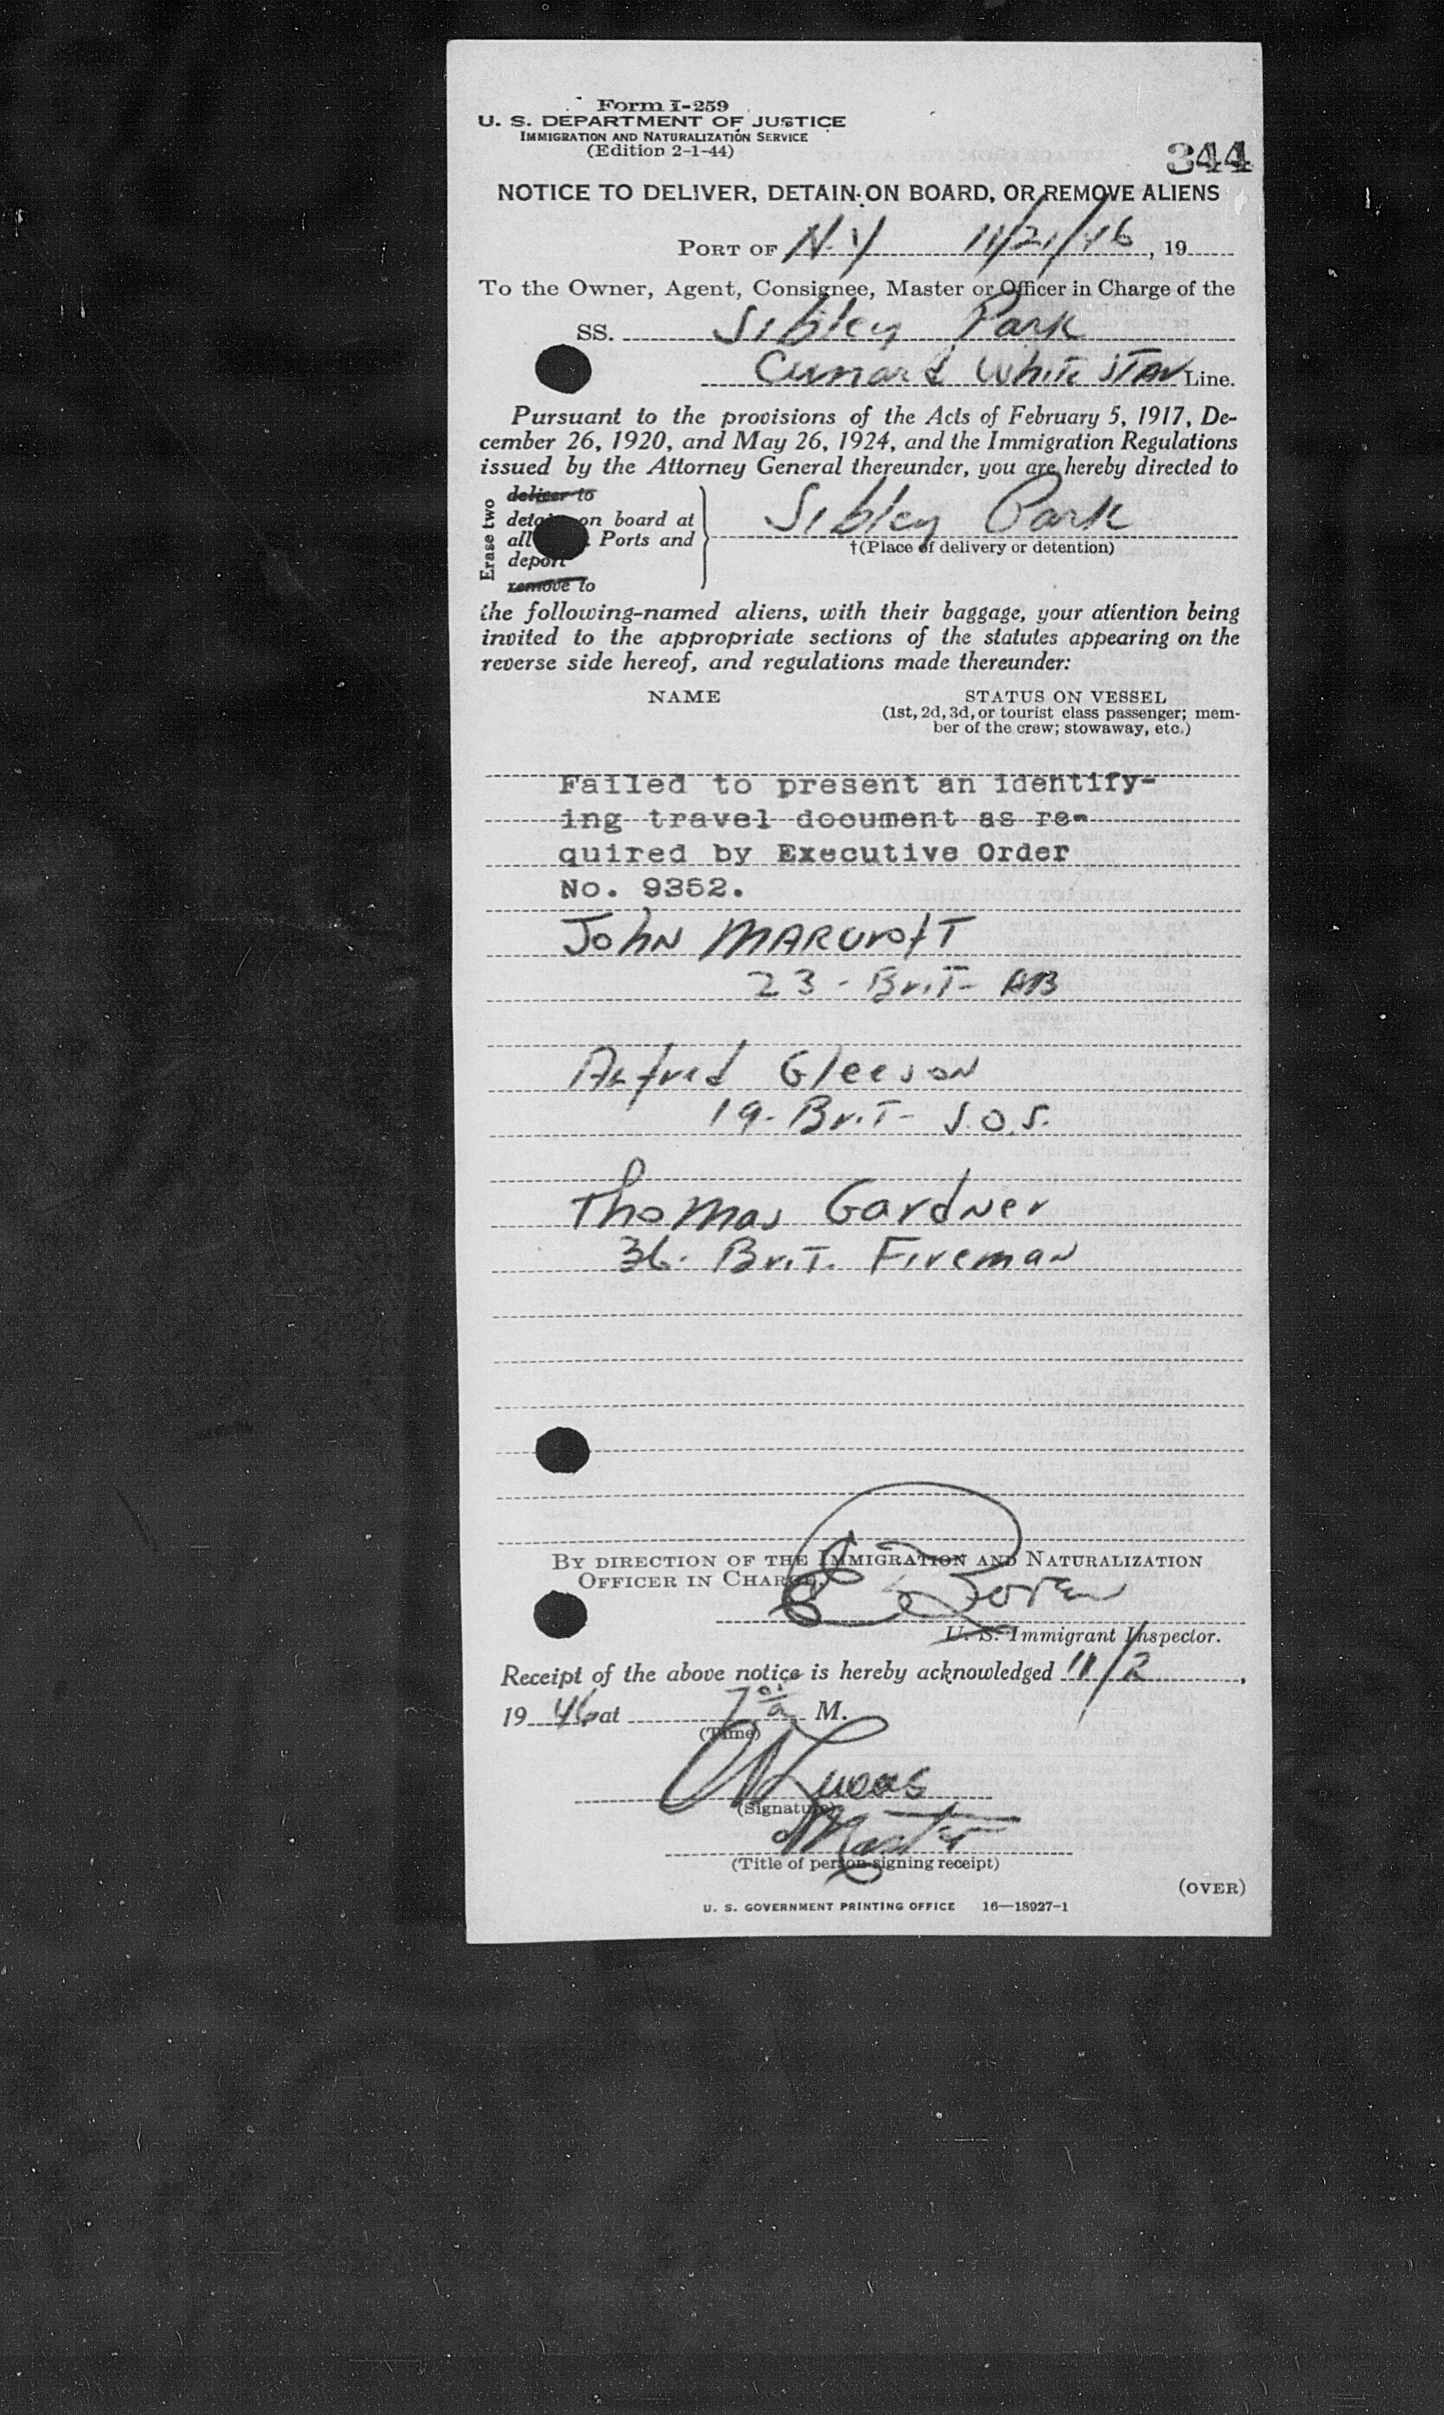 Form I-259
U. S. DEPARTMENT OF JUSTICE
IMMIGRATION AND NATURALIZATION SERVICE
(Edition 2-1-44)
344
NOTICE TO DELIVER, DETAIN ON BOARD, OR REMOVE ALIENS
PORT OF N.Y 11/21/46, 19
To the Owner, Agent, Consignee, Master or Officer in Charge of the
SS. Sibley Park
Cunard White STAr Line.
Pursuant to the provisions of the Acts of February 5, 1917, De-
cember 26, 1920, and May 26, 1924, and the Immigration Regulations
issued by the Attorney General thereunder, you are hereby directed to
Erase two
deliver to
on board at
all Ports and
deport
remove to
Sibley Park
†(Place of delivery or detention)
the following-named aliens, with their baggage, your attention being
invited to the appropriate sections of the statutes appearing on the
reverse side hereof, and regulations made thereunder:
NAME
STATUS ON VESSEL
(1st, 2d, 3d, or tourist class passenger; mem-
ber of the crew; stowaway, etc.)
Failed to present an identify-
ing travel document as re-
quired by Executive Order
No. 9352.
John MARCroft
23 - Brit - AB
Alfred Gleeson
19 - Brit - S.O.S.
Thomas Gardner
36. Brit. Fireman
BY DIRECTION OF THE IMMIGRATION AND NATURALIZATION
OFFICER IN CHARGE,
U. S. Immigrant Inspector.
Receipt of the above notice is hereby acknowledged 11/2,
19 46 at 7 a M.
(Time)
Lucas
(Signature)
Master
(Title of person signing receipt)
(OVER)
U. S. GOVERNMENT PRINTING OFFICE 16—18927-1